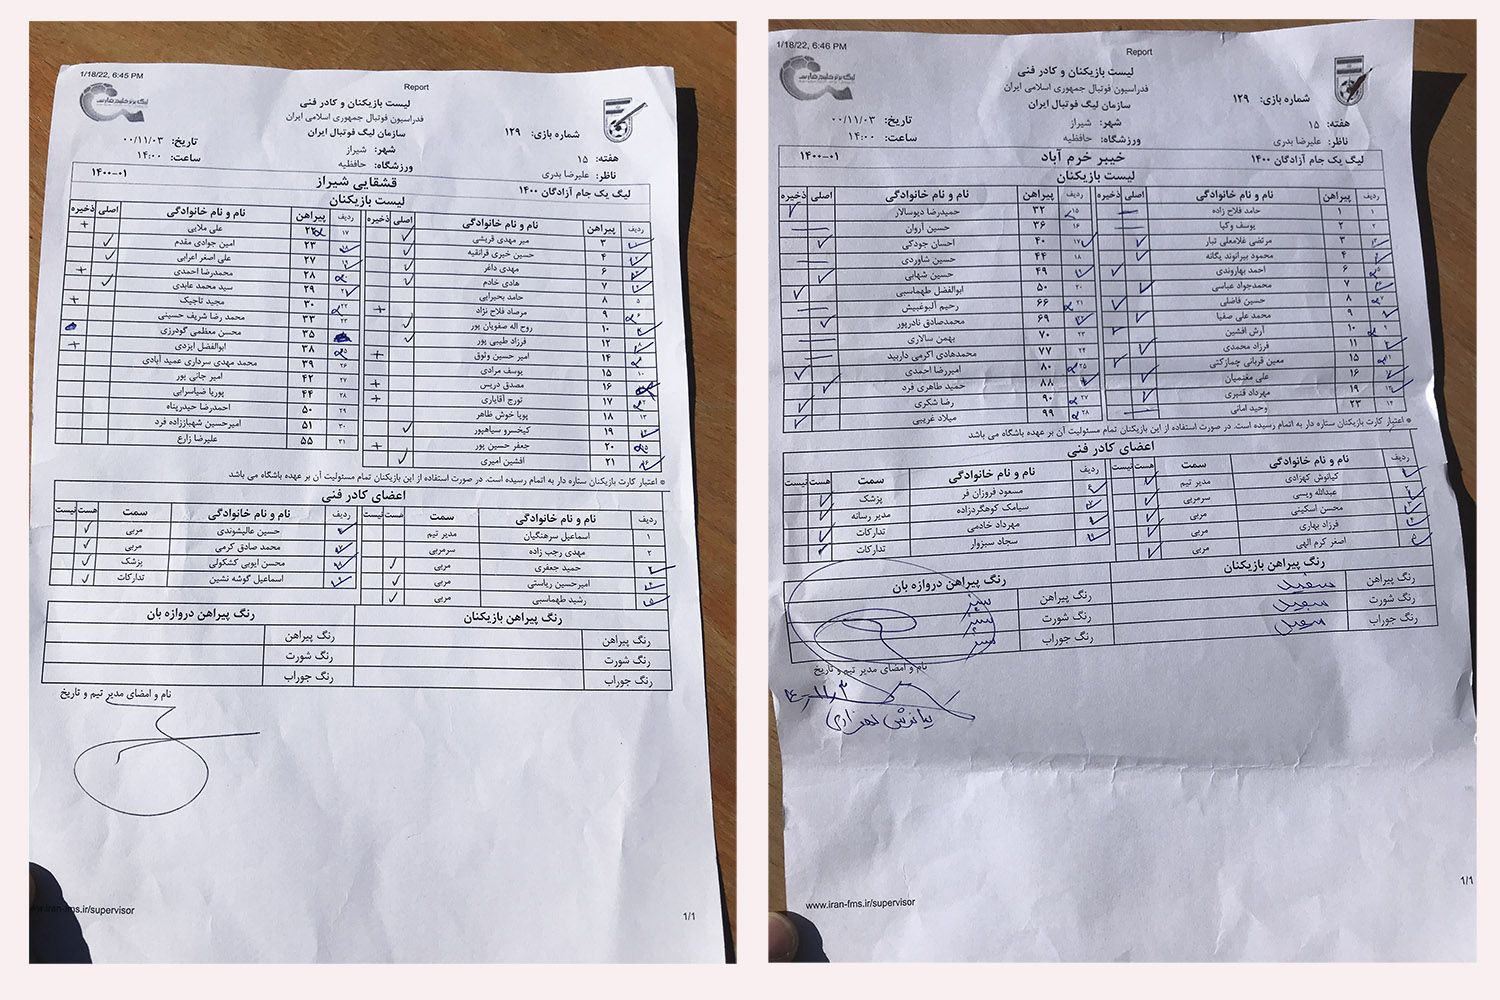 1/18/22, 6:45 PM
Report
لیست بازیکنان و کادر فنی
فدراسیون فوتبال جمهوری اسلامی ایران
سازمان لیگ فوتبال ایران
شماره بازی: ۱۲۹
هفته: ۱۵
شهر: شیراز
تاریخ: ۰۰/۱۱/۰۳
ناظر: علیرضا بدری
ورزشگاه: حافظیه
ساعت: ۱۴:۰۰
لیگ یک جام آزادگان ۱۴۰۰
قشقایی شیراز
۱۴۰۰-۰۱
لیست بازیکنان
ردیف پیراهن نام و نام خانوادگی اصلی ذخیره
۳ میر مهدی قریشی
۴ حسین خیری قرانقیه
۶ مهدی داغر
۷ هادی خادم
۵ ۸ حامد بحیرایی
۹ مرصاد فلاح نژاد
۱۰ روح اله صفویان پور
۱۲ فرزاد طیبی پور
۱۴ امیر حسین وثوق
۱۰ ۱۵ یوسف مرادی
۱۶ مصدق دریس
۱۷ تورج آقایاری
۱۳ ۱۸ پویا خوش ظاهر
۱۹ کیخسرو سیاهپور
۲۰ جعفر حسین پور
۲۱ افشین امیری
ردیف پیراهن نام و نام خانوادگی اصلی ذخیره
۱۷ ۲۲ علی ملایی
۲۳ امین جوادی مقدم
۲۷ علی اصغر اعرابی
۲۸ محمدرضا احمدی
۲۹ سید محمد عابدی
۳۰ مجید تاجیک
۲۳ ۳۳ محمد رضا شریف حسینی
۳۵ محسن معظمی گودرزی
۳۸ ابوالفضل ایزدی
۲۶ ۳۹ محمد مهدی سرداری عمید آبادی
۲۷ ۴۲ امیر جانی پور
۲۸ ۴۴ پوریا ضیاسرابی
۲۹ ۵۰ احمدرضا حیدرپناه
۳۰ ۵۱ امیرحسین شهباززاده فرد
۳۱ ۵۵ علیرضا زارع
* اعتبار کارت بازیکنان ستاره دار به اتمام رسیده است. در صورت استفاده از این بازیکنان تمام مسئولیت آن بر عهده باشگاه می باشد
اعضای کادر فنی
ردیف نام و نام خانوادگی سمت هست نیست
۱ اسماعیل سرهنگیان مدیر تیم
۲ مهدی رجب زاده سرمربی
حمید جعفری مربی
امیرحسین ریاستی مربی
رشید طهماسبی مربی
ردیف نام و نام خانوادگی سمت هست نیست
حسین عالیشوندی مربی
محمد صادق کرمی مربی
محسن ایوبی کشکولی پزشک
اسماعیل گوشه نشین تدارکات
رنگ پیراهن بازیکنان
رنگ پیراهن دروازه بان
رنگ پیراهن رنگ پیراهن
رنگ شورت رنگ شورت
رنگ جوراب رنگ جوراب
نام و امضای مدیر تیم و تاریخ
.iran-fms.ir/supervisor
1/1
1/18/22, 6:46 PM
Report
لیست بازیکنان و کادر فنی
فدراسیون فوتبال جمهوری اسلامی ایران
سازمان لیگ فوتبال ایران
شماره بازی: ۱۲۹
هفته: ۱۵
شهر: شیراز
تاریخ: ۰۰/۱۱/۰۳
ناظر: علیرضا بدری
ورزشگاه: حافظیه
ساعت: ۱۴:۰۰
لیگ یک جام آزادگان ۱۴۰۰
خیبر خرم آباد
۱۴۰۰-۰۱
لیست بازیکنان
ردیف پیراهن نام و نام خانوادگی اصلی ذخیره
۱ ۱ حامد فلاح زاده
۲ ۲ یوسف وکیا
۳ مرتضی غلامعلی تبار
۴ محمود بیرانوند یگانه
۶ احمد بهاروندی
۷ محمدجواد عباسی
۸ حسین فاضلی
۹ محمد علی صفیا
۱۰ آرش افشین
۱۱ فرزاد محمدی
۱۵ معین قربانی چمازکتی
۱۶ علی مغنمیان
۱۹ مهرداد قنبری
۱۴ ۲۳ وحید امانی
ردیف پیراهن نام و نام خانوادگی اصلی ذخیره
۱۵ ۳۲ حمیدرضا دیوسالار
۱۶ ۳۶ حسین آروان
۱۷ ۴۰ احسان جودکی
۱۸ ۴۴ حسین شاوردی
۴۹ حسین شهابی
۲۰ ۵۰ ابوالفضل طهماسبی
۲۱ ۶۶ رحیم آلبوغبیش
۶۹ محمدصادق نادرپور
۲۳ ۷۰ بهمن سالاری
۲۴ ۷۷ محمدهادی اکرمی دارپید
۲۵ ۸۰ امیررضا احمدی
۸۸ حمید طاهری فرد
۲۷ ۹۰ رضا شکری
۲۸ ۹۹ میلاد غریبی
* اعتبار کارت بازیکنان ستاره دار به اتمام رسیده است. در صورت استفاده از این بازیکنان تمام مسئولیت آن بر عهده باشگاه می باشد
اعضای کادر فنی
ردیف نام و نام خانوادگی سمت هست نیست
کیانوش کهزادی مدیر تیم
عبدالله ویسی سرمربی
محسن اسکینی مربی
فرزاد بهاری مربی
اصغر کرم الهی مربی
ردیف نام و نام خانوادگی سمت هست نیست
مسعود فروزان فر پزشک
سیامک کوهگردزاده مدیر رسانه
مهرداد خادمی تدارکات
سجاد سبزوار تدارکات
رنگ پیراهن بازیکنان
رنگ پیراهن دروازه بان
رنگ پیراهن سفید رنگ پیراهن سبز
رنگ شورت سفید رنگ شورت سبز
رنگ جوراب سفید رنگ جوراب سبز
نام و امضای مدیر تیم و تاریخ
www.iran-fms.ir/supervisor
1/1